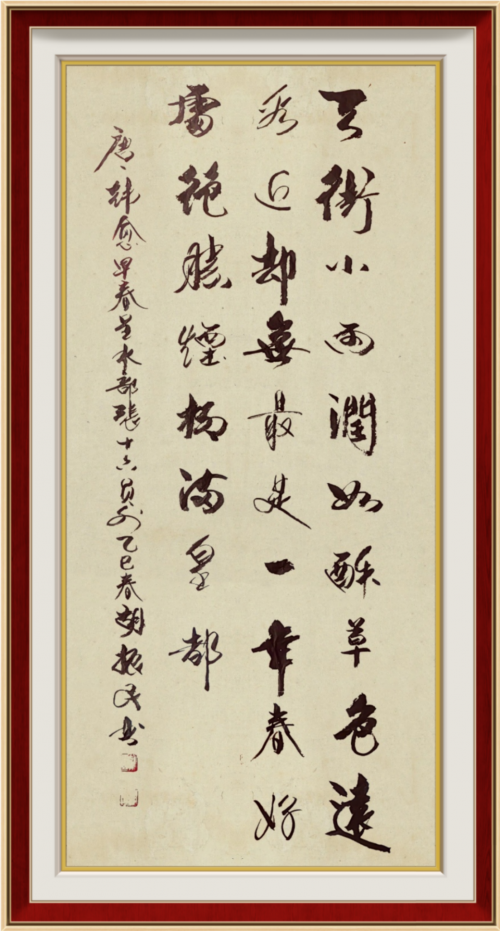 天街小雨潤如酥草色遠
看近却無最是一年春好
處絕勝煙柳滿皇都
唐、韩愈早春呈水部張十八員外乙巳春胡振民书